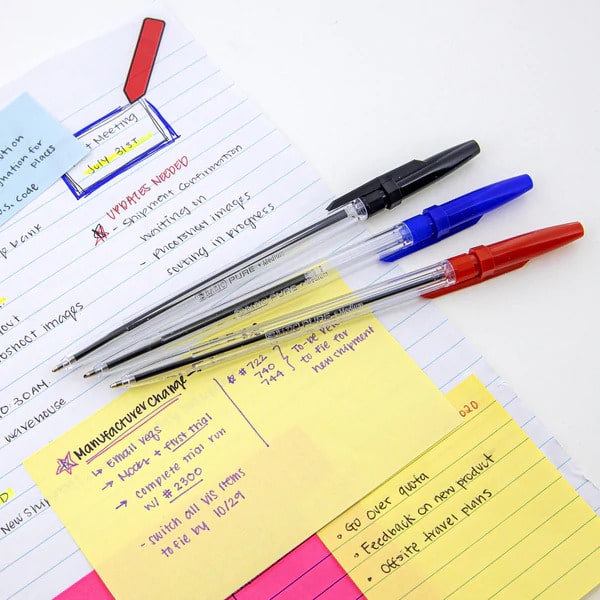 for places
U.S. code
Meeting
July 31st
UPDATES NEEDED
- Shipment confirmation
waiting on
- Photoshoot images
sorting in progress
bank
images
warehouse
PURE • Medium
PURE
Manufacturer Change
↳ Email reqs
→ + first trial
→ complete trial run
w/ # 2300
- switch all V/S items
to file by 10/29
# 722
740
744
to file for
new shipment
020
• Go over quota
• Feedback on new product
• Offsite travel plans